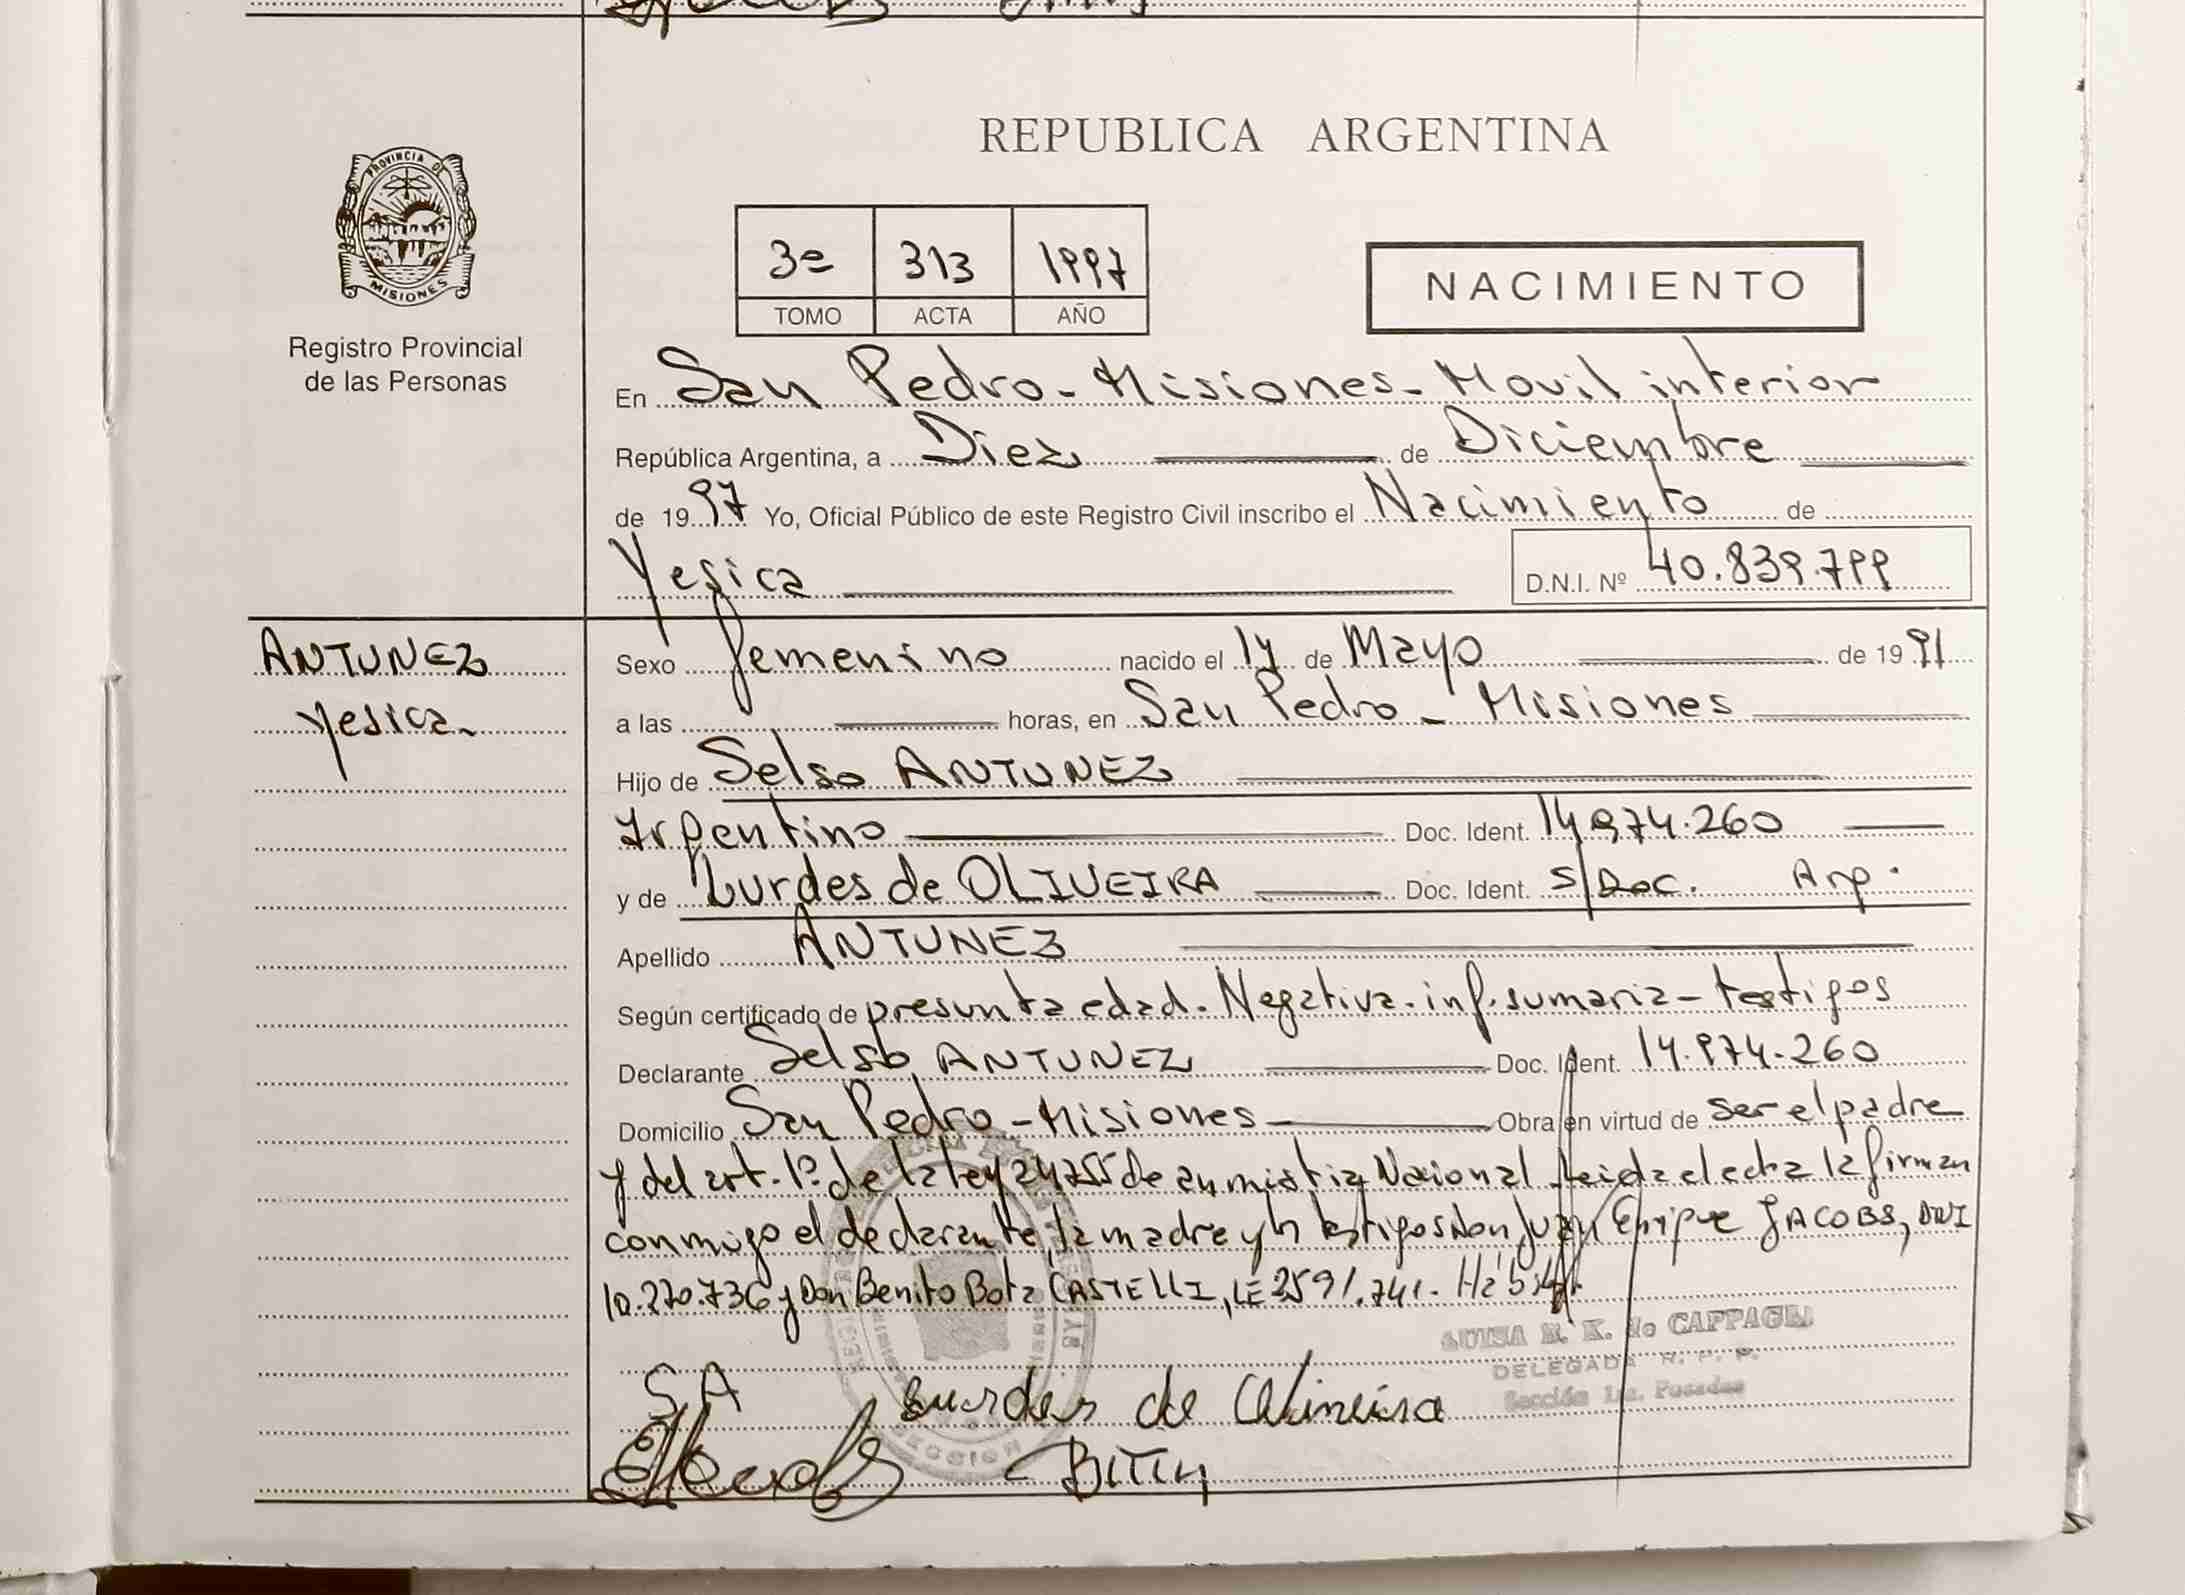 REPUBLICA ARGENTINA
PROVINCIA DE
MISIONES
Registro Provincial
de las Personas
3º 313 1997
TOMO ACTA AÑO
NACIMIENTO
En San Pedro - Misiones - Movil interior
República Argentina, a Diez de Diciembre
de 1997 Yo, Oficial Público de este Registro Civil inscribo el Nacimiento de
Yesica D.N.I. Nº 40.839.799
ANTUNEZ
Yesica
Sexo femenino nacido el 14 de Mayo de 1991
a las horas, en San Pedro - Misiones
Hijo de Selso ANTUNEZ
Argentino Doc. Ident. 14.974.260
y de Lurdes de OLIVEIRA Doc. Ident. S/Doc. Arg.
Apellido ANTUNEZ
Según certificado de presunta edad. Negativa. inf. sumaria - testigos
Declarante Selso ANTUNEZ Doc. Ident. 14.974.260
Domicilio San Pedro - Misiones Obra en virtud de ser el padre
y del art. 1º de la ley 24755 de anmistia Nacional Leida el acta la firman
conmigo el declarante, la madre y los testigos Don Juan Enrique JACOBS, DNI
10.270.736 y Don Benito Bota CASTELLI, LE 2591.741.
LUISA K. de CAPPAGLI
DELEGADA R. P. P.
Sección 1ra. Posadas
S A Lurdes de Oliveira